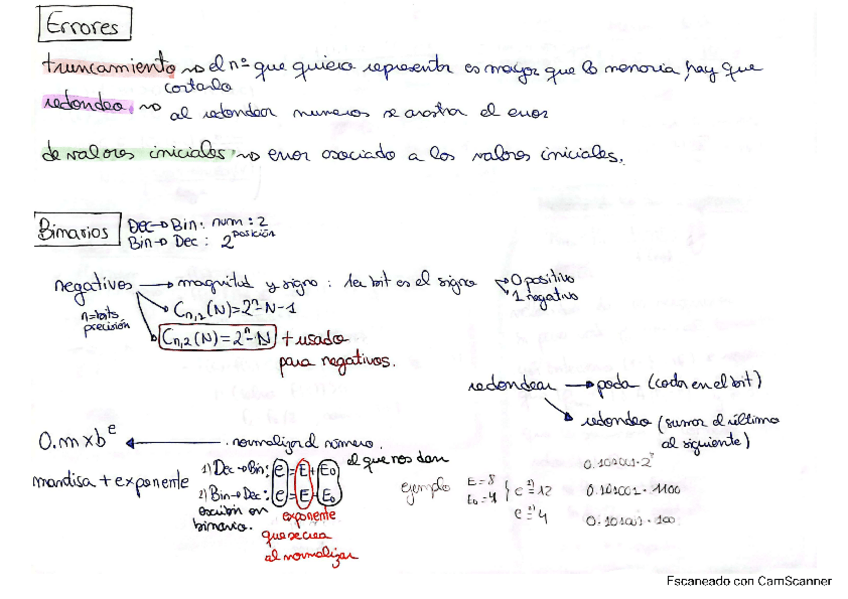 Errores
truncamiento → el nº que quiero representar es mayor que la memoria, hay que
cortarlo
redondeo → al redondear numeros se arastra el error
de valores iniciales → error asociado a los valores iniciales.
Binarios
Dec → Bin: num : 2
Bin → Dec : 2^posición
negativos → magnitud y signo : 1er bit es el signo → 0 positivo
→ 1 negativo
n=bits
precisión
Cn,2(N)=2^n-N-1
Cn,2(N)=2^n-N + usado
para negativos.
redondear → poda (cortar en el bit)
→ redondeo (sumar el último
al siguiente)
0.m×b^e ← normalizar el número.
mantisa + exponente
1) Dec → Bin: e = E + E0 el que nos dan
2) Bin → Dec: e = E - E0
escribir en
binario.
exponente
que se crea
al normalizar
ejemplo E=8
E0=4 } e 1)= 12
e 2)= 4
0.101001 · 1100
0.101001 · 100
Escaneado con CamScanner